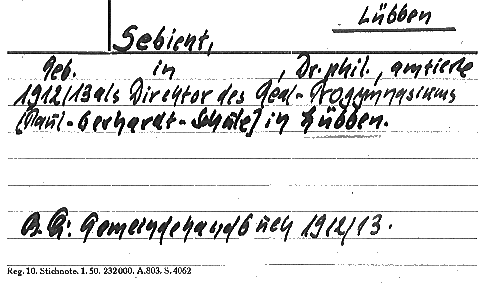 Lübben
Sebient,
Geb. in , Dr. phil., amtierte
1912/13 als Direktor des Real-Progymnasiums
(Paul-Gerhardt-Schule) in Lübben.
B.Q: Gemeindehandbuch 1912/13.
Reg. 10. Stichnote. 1. 50. 232000. A.803. S. 4062